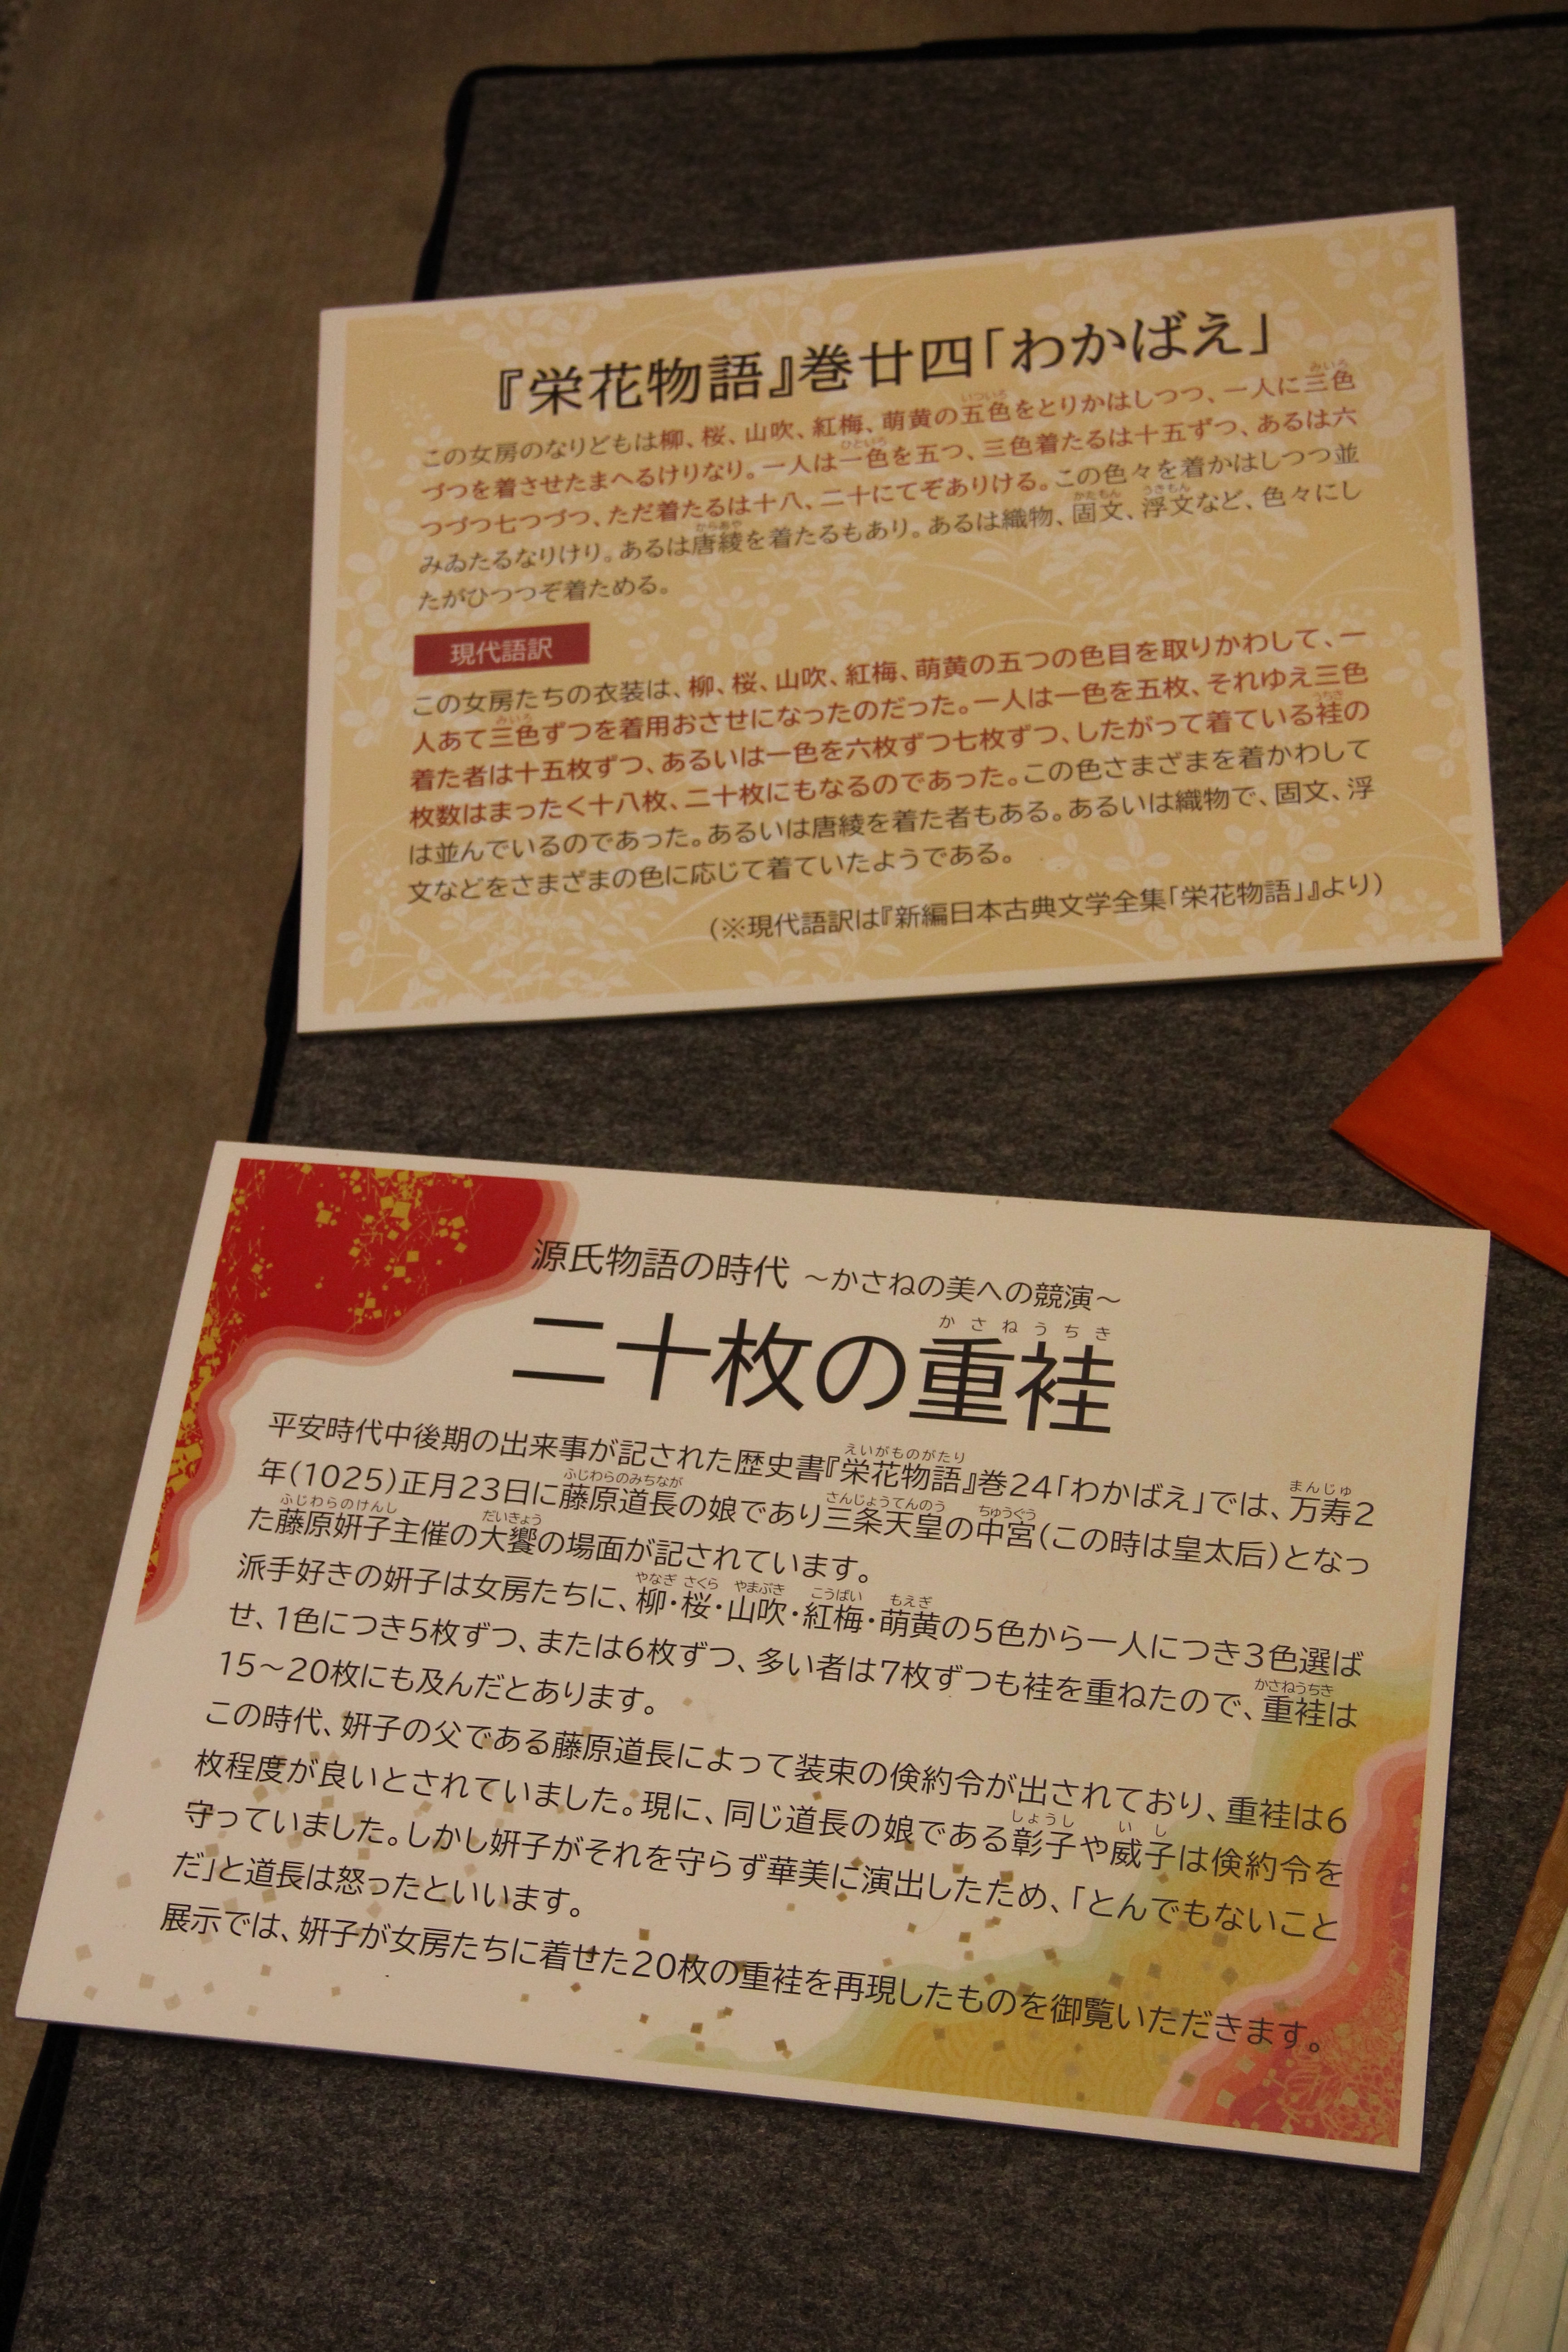 『栄花物語』巻廿四「わかばえ」
この女房のなりどもは柳、桜、山吹、紅梅、萌黄の五色をとりかはしつつ、一人に三色
づつを着させたまへるけりなり。一人は一色を五つ、三色着たるは十五ずつ、あるは六
つづつ七つづつ、ただ着たるは十八、二十にてぞありける。この色々を着かはしつつ並
みゐたるなりけり。あるは唐綾を着たるもあり。あるは織物、固文、浮文など、色々にし
たがひつつぞ着ためる。
現代語訳
この女房たちの衣装は、柳、桜、山吹、紅梅、萌黄の五つの色目を取りかわして、一
人あて三色ずつを着用おさせになったのだった。一人は一色を五枚、それゆえ三色
着た者は十五枚ずつ、あるいは一色を六枚ずつ七枚ずつ、したがって着ている袿の
枚数はまったく十八枚、二十枚にもなるのであった。この色さまざまを着かわして
は並んでいるのであった。あるいは唐綾を着た者もある。あるいは織物で、固文、浮
文などをさまざまの色に応じて着ていたようである。
(※現代語訳は『新編日本古典文学全集「栄花物語」』より)
源氏物語の時代 ～かさねの美への競演～
かさねうちき
二十枚の重袿
平安時代中後期の出来事が記された歴史書『栄花物語』巻24「わかばえ」では、万寿2
年(1025)正月23日に藤原道長の娘であり三条天皇の中宮(この時は皇太后)となっ
た藤原姸子主催の大饗の場面が記されています。
派手好きの姸子は女房たちに、柳・桜・山吹・紅梅・萌黄の5色から一人につき3色選ば
せ、1色につき5枚ずつ、または6枚ずつ、多い者は7枚ずつも袿を重ねたので、重袿は
15～20枚にも及んだとあります。
この時代、姸子の父である藤原道長によって装束の倹約令が出されており、重袿は6
枚程度が良いとされていました。現に、同じ道長の娘である彰子や威子は倹約令を
守っていました。しかし姸子がそれを守らず華美に演出したため、「とんでもないこと
だ」と道長は怒ったといいます。
展示では、姸子が女房たちに着せた20枚の重袿を再現したものを御覧いただきます。